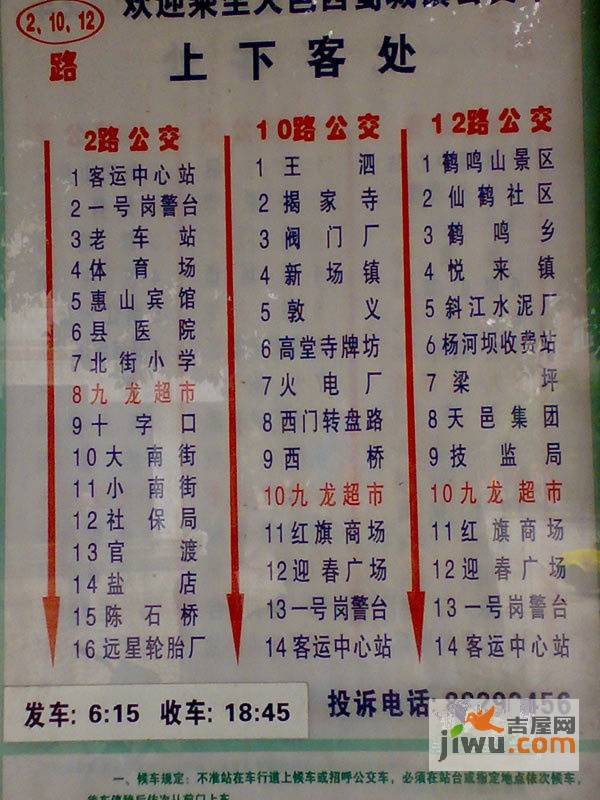 欢迎乘坐大邑西蜀城镇公交车
2, 10, 12
路
上下客处
2路公交
1 客运中心站
2 一号岗警台
3 老车站
4 体育场
5 惠山宾馆
6 县医院
7 北街小学
8 九龙超市
9 十字口
10 大南街
11 小南街
12 社保局
13 官渡
14 盐店
15 陈石桥
16 远星轮胎厂
10路公交
1 王泗
2 揭家寺
3 阀门厂
4 新场镇
5 敦义
6 高堂寺牌坊
7 火电厂
8 西门转盘路
9 西桥
10 九龙超市
11 红旗商场
12 迎春广场
13 一号岗警台
14 客运中心站
12路公交
1 鹤鸣山景区
2 仙鹤社区
3 鹤鸣乡
4 悦来镇
5 斜江水泥厂
6 杨河坝收费站
7 梁坪
8 天邑集团
9 技监局
10 九龙超市
11 红旗商场
12 迎春广场
13 一号岗警台
14 客运中心站
发车: 6:15 收车: 18:45
投诉电话:
吉屋网
jiwu.com
一、候车规定: 不准站在车行道上候车或招呼公交车, 必须在站台或指定地点依次候车,